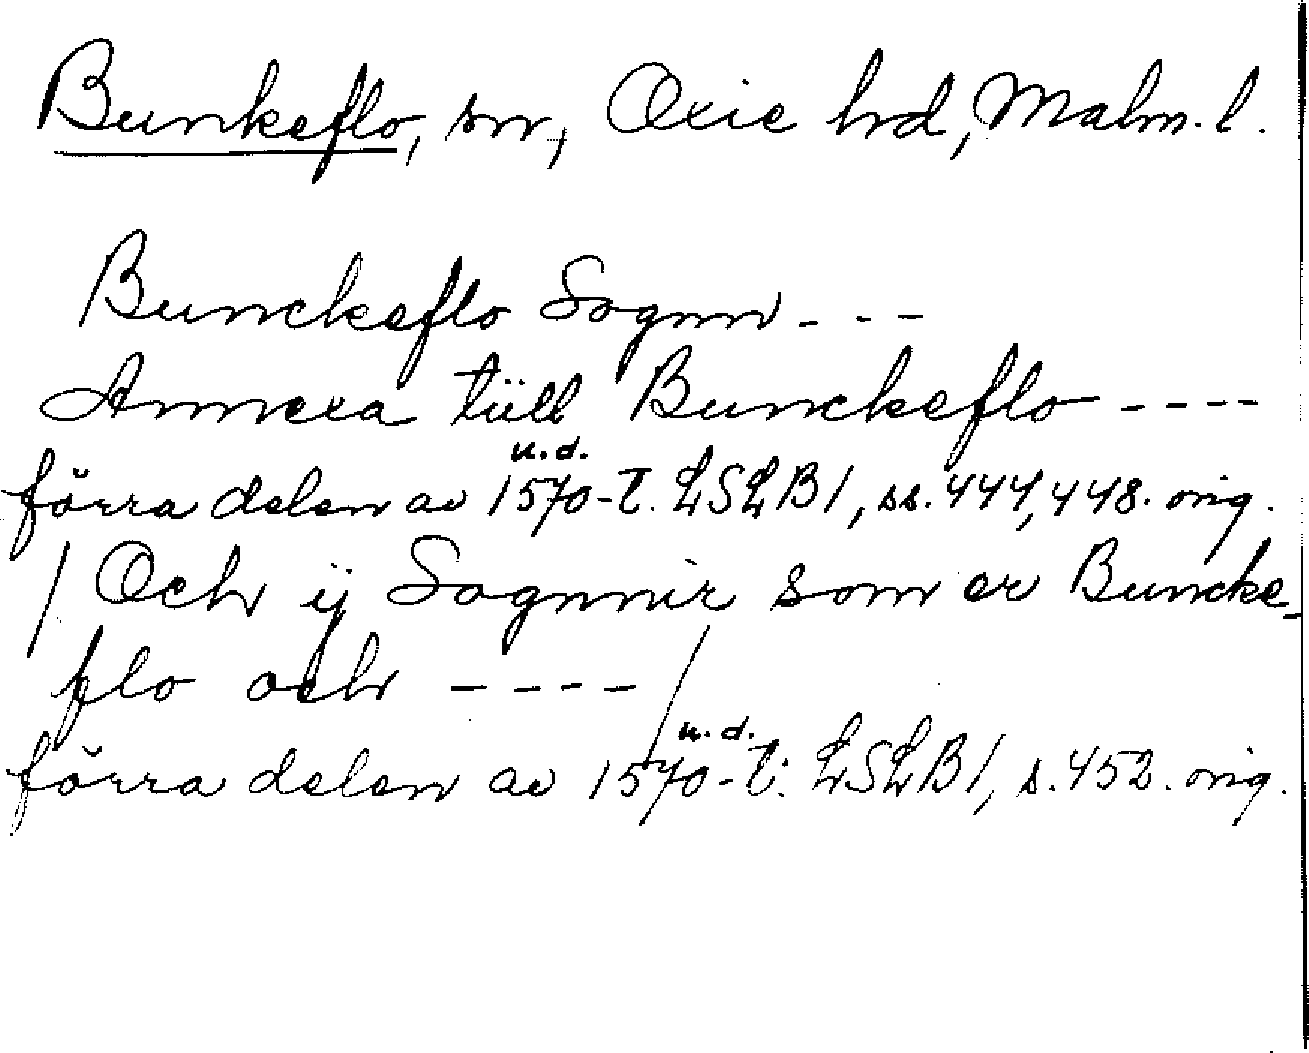 Bunkeflo, sn, Oxie hd, Malm. l.
Bunckeflo Sognn - - -
Annexa tüll Bunckeflo - - - -
u.d.
förra delen av 1570-t. LSLB1, ss. 444, 448. orig.
/ Och ij Sognnir som er Buncke-
flo och - - - - /
u.d.
förra delen av 1570-t. LSLB1, s. 452. orig.